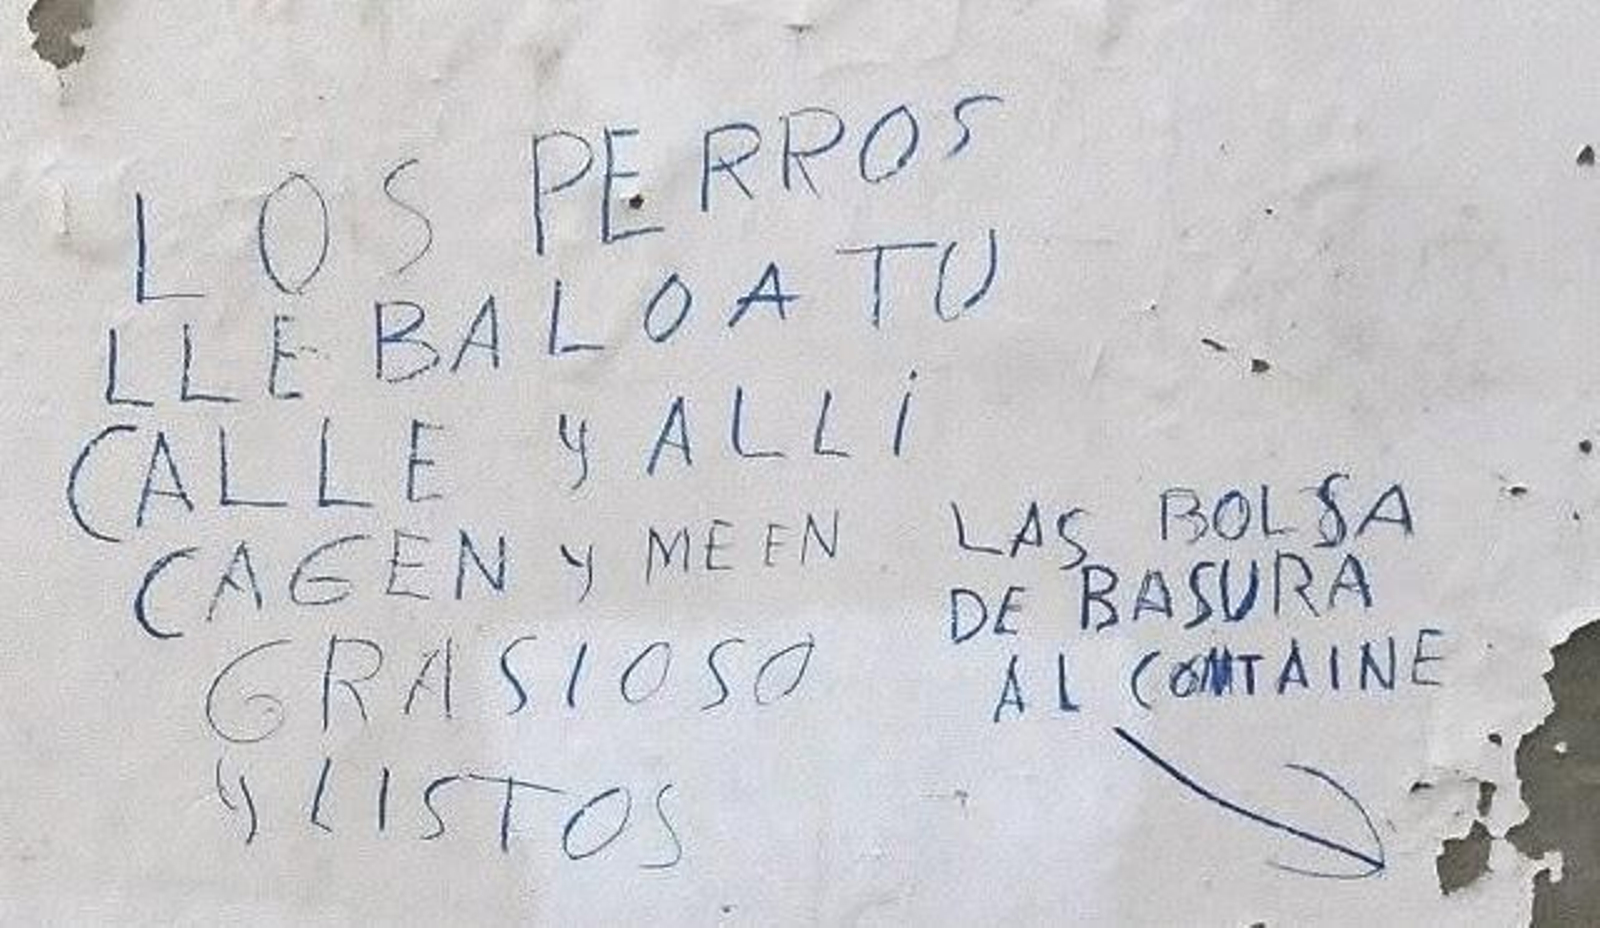 LOS PERROS
LLEBALOA TU
CALLE y ALLi
CAGEN y MEEN
GRASIOSO
y LISTOS
LAS BOLSA
DE BASURA
AL CONTAINE